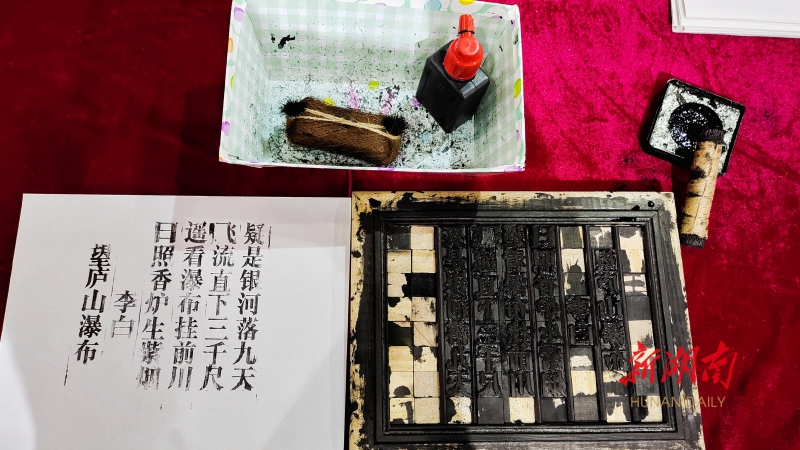 望庐山瀑布
李白
日照香炉生紫烟
遥看瀑布挂前川
飞流直下三千尺
疑是银河落九天
新湖南
HUNAN DAILY